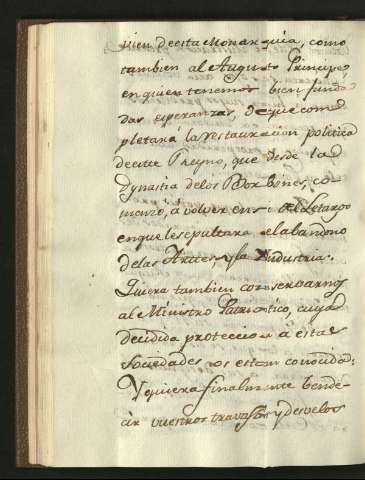 bien de esta Monarquia, como
tambien al Augusto Principe,
en quien tenemos bien funda-
das esperanzas, de que com
pletará la restauracion politica
de este Reyno, que desde la
Dynastia de los Borbones, co-
menzó, á volver en si del letargo
en que le sepultara el abandono
de las Artes, y la Industria.
Quiera tambien conservarnos
al Ministro Patriotico, cuya
decidida proteccion á estas
Sociedades nos es tan conocida:
Y quiera finalmente bende-
cir vuestros travajos y desvelos